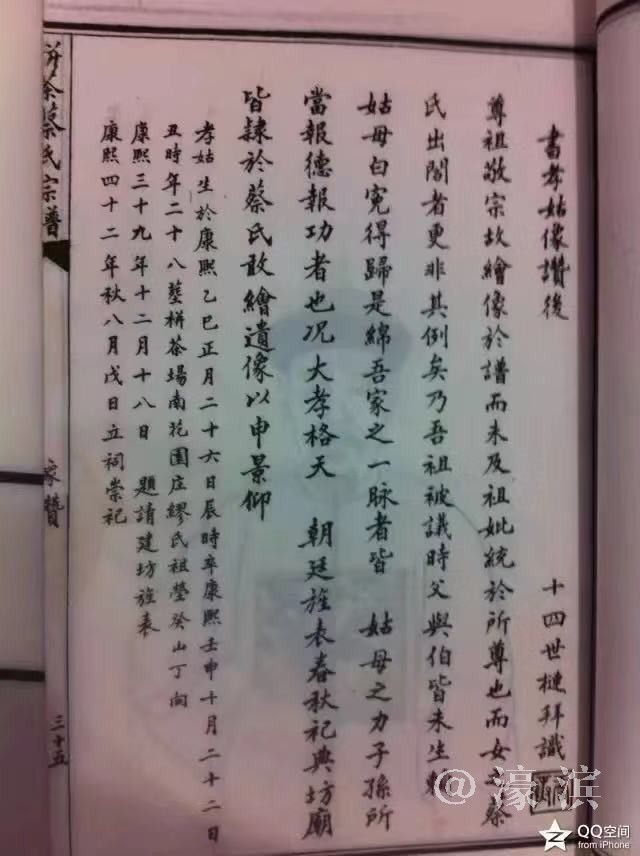 書孝姑像讚後
十四世槤拜識
尊祖敬宗故繪像於譜而未及祖妣統於所尊也而女之蔡
氏出閣者更非其例矣乃吾祖被議時父與伯皆未生賴
姑母白寃得歸是綿吾家之一脉者皆 姑母之力子孫所
當報德報功者也况大孝格天 朝廷旌表春秋祀典坊廟
皆隸於蔡氏敢繪遺像以申景仰
孝姑生於康熙乙巳正月二十六日辰時卒康熙壬申十月二十二日
丑時年二十八塟栟茶場南花園庄繆氏祖塋癸山丁向
康熙三十九年十二月十八日 題請建坊旌表
康熙四十二年秋八月戊日立祠崇祀
栟茶蔡氏宗譜
像贊
三十五
@濠滨
QQ空间
from iPhone